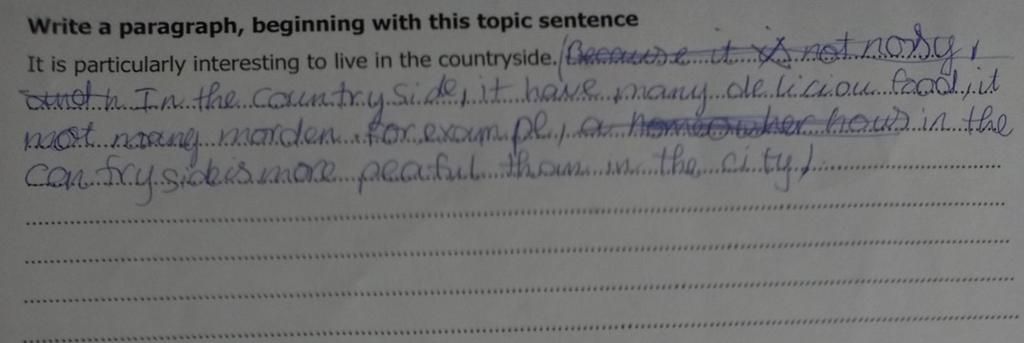 Write a paragraph, beginning with this topic sentence
It is particularly interesting to live in the countryside. (Because it is not nosy,
In the country side, it have many deliciou food, it
not many morden. for exampe, a homeowher hows in the
contryside is more peaful than in the city)